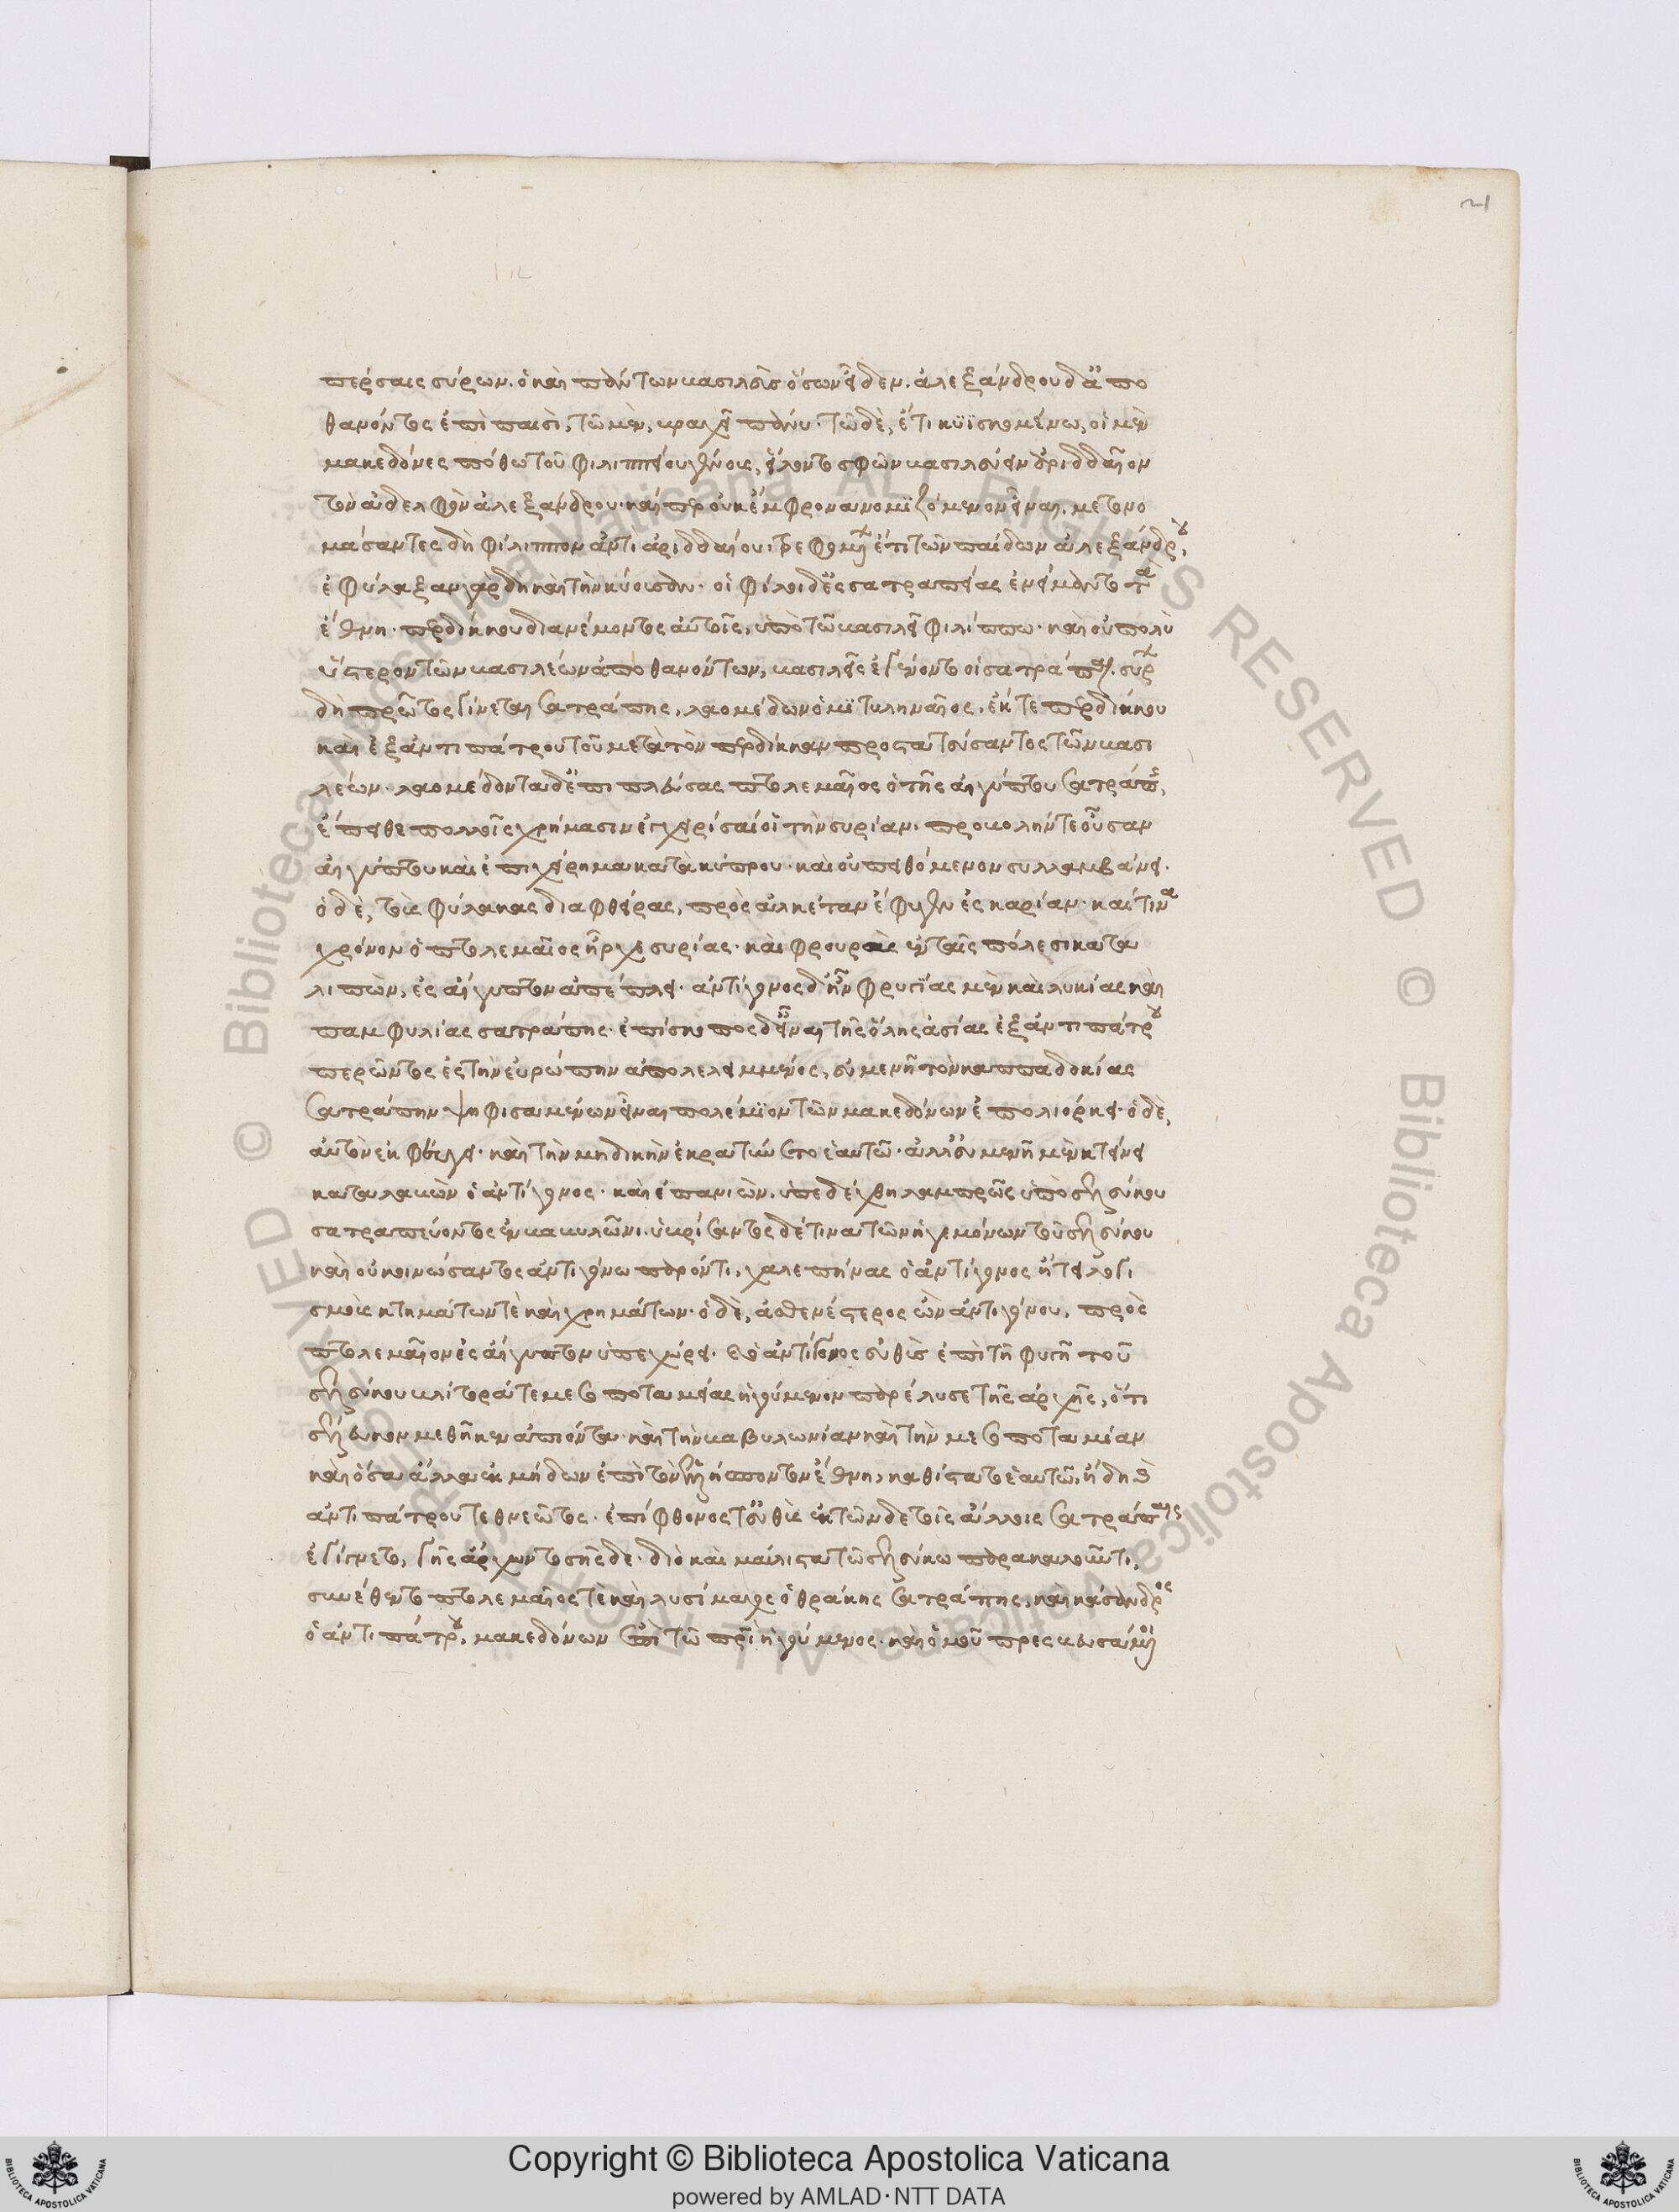 21
πέρσαις σύρων. ὁ καὶ πάντων βασιλεὺς ὅσων εἶδεν. ἀλεξάνδρου δ' ἀπο
θανόντος ἐπὶ παισὶ, τῶ μὲν, βραχεῖ πάνυ. τῶ δὲ, ἔτι κυϊσκομένω, οἱ μὲν
μακεδόνες πόθω τοῦ φιλιππείου γένους, εἵλοντο σφῶν βασιλεύειν ἀριδδαῖον
τὸν ἀδελφὸν ἀλεξάνδρου. καίπερ οὐκ ἔμφρονα νομϊζόμενον εἶναι. μετονο
μάσαντες δὴ φίλιππον ἀντὶ ἀριδδαίου. τρεφομένων ἔτι τῶν παίδων ἀλεξάνδρου,
ἐφύλαξαν γὰρ δὴ καὶ τὴν κύουσαν. οἱ φίλοι δ' ἐς σατραπείας ἐνείμαντο τὰ
ἔθνη. περδίκκου διανέμοντος αὐτοῖς, ὑπὸ τῶ βασιλεῖ φιλίππω. καὶ οὐ πολὺ
ὕστερον τῶν βασιλέων ἀποθανόντων, βασιλεῖς ἐγένοντο οἱ σατράπαι. σύρων
δὴ πρῶτος γίνεται σατράπης, λαομέδων ὁ μϊτυληναῖος, ἔκ τε περδίκκου
καὶ ἐξ ἀντιπάτρου τοῦ μετὰ τὸν περδίκκαν προστατεύσαντος τῶν βασι
λέων. λαομέδοντα δ' ἐπιπλεύσας πτολεμαῖος ὁ τῆς αἰγύπτου σατράπης,
ἔπειθε πολλοῖς χρήμασιν ἐγχειρίσαί οἱ τὴν συρίαν. προβολήν τε οὖσαν
αἰγύπτου καὶ ἐπιχείρημα κατὰ κύπρου. καὶ οὐ πειθόμενον συλλαμβάνει.
ὁ δὲ, τοὺς φύλακας διαφθείρας, πρὸς ἀλκέταν ἔφυγεν ἐς καρίαν. καί τινα
χρόνον ὁ πτολεμαῖος ἦρχε συρίας. καὶ φρουρὰς ἐν ταῖς πόλεσι κατα
λιπὼν, ἐς αἴγυπτον ἀπέπλει. ἀντίγονος δ' ἦν φρυγίας μὲν καὶ λυκίας καὶ
παμφυλίας σατράπης. ἐπίσκοπος δ' εἶναι τῆς ὅλης ἀσίας ἐξ ἀντιπάτρου
περῶντος ἐς τὴν εὐρώπην ἀπολελειμμένος, εὐμενῆ τὸν καππαδοκίας
σατράπην ψηφισαμένων εἶναι πολέμϊον τῶν μακεδόνων ἐπολιόρκει. ὁ δὲ,
αὐτὸν ἐκφεύγει. καὶ τὴν μηδικὴν ἐκρατύνετο ἑαυτῶ. ἀλλ' εὐμενῆ μὲν κτείνει
καταλαβὼν ὁ ἀντίγονος. καὶ ἐπανιὼν, ὑπεδέχθη λαμπρῶς ὑπὸ σελεύκου
σατραπεύοντος ἐν βαβυλῶνι. ὑβρίσαντος δέ τινα τῶν ἡγεμόνων τοῦ σελεύκου
καὶ οὐ κοινώσαντος ἀντιγόνω παρόντι, χαλεπήνας ὁ ἀντίγονος ἤτει λογι
σμοὺς κτημάτων τὲ καὶ χρημάτων. ὁ δὲ, ἀσθενέστερος ὢν ἀντιγόνου, πρὸς
πτολεμαῖον ἐς αἴγυπτον ὑπεχώρει. ὁ ἀντίγονος εὐθὺς ἐπὶ τῆ φυγῆ τοῦ
σελεύκου βλίτορά τε μεσοποταμείας ἡγούμενον παρέλυσε τῆς ἀρχῆς, ὅτι
σέλευκον μεθῆκεν ἀπιόντα. καὶ τὴν βαβυλωνίαν καὶ τὴν μεσοποταμίαν
καὶ ὅσα ἄλλα ἐκ μήδων ἐπὶ τὸν ἑλλήσποντον ἔθνη, καθίστατο ἑαυτῶ, ἤδη καὶ
ἀντιπάτρου τεθνεῶτος. ἐπίφθονός τ' εὐθὺς ἐκ τῶνδε τοῖς ἄλλοις σατράπαις
ἐγίγνετο, γῆς ἄρχων τοσῆσδε. διὸ καὶ μάλιστα τῶ σελεύκω παρακαλοῦντι,
συνέθεντο πτολεμαῖος τὲ καὶ λυσίμαχος ὁ θράκης σατράπης, καὶ κάσανδρος
ὁ ἀντιπάτρου, μακεδόνων ἐπὶ τῶ πατρὶ ἡγούμενος. καὶ ὁμοῦ πρεσβευσάμενοι
Copyright © Biblioteca Apostolica Vaticana
powered by AMLAD·NTT DATA